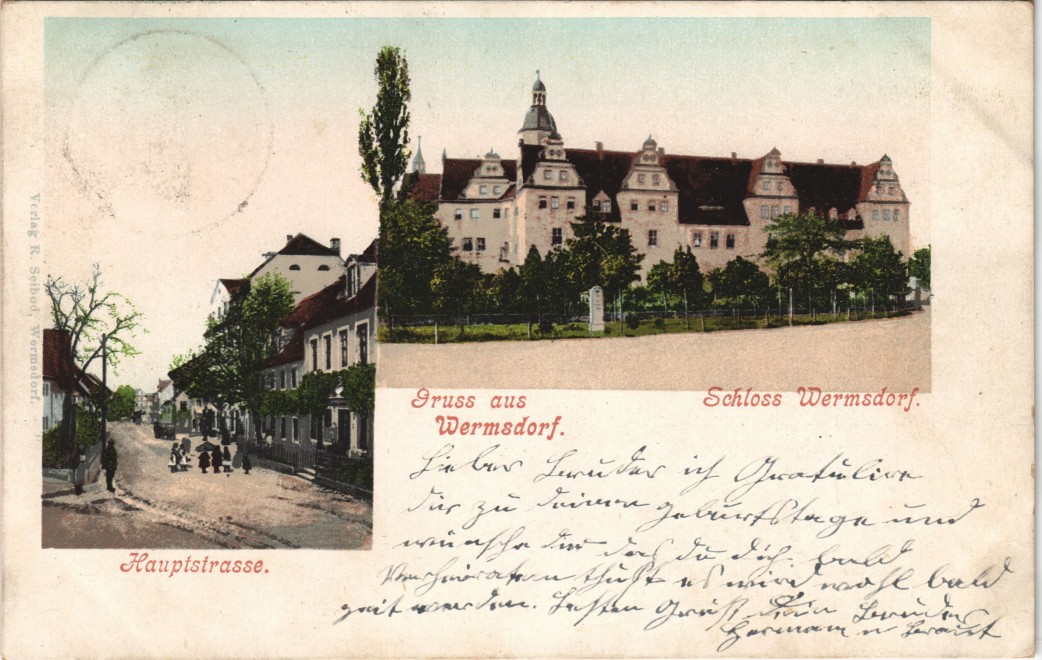 Verlag R. Seibod, Wermsdorf.
Gruss aus
Wermsdorf.
Schloss Wermsdorf.
Hauptstrasse.
Lieber Bruder ich Gratulire
dir zu deinen geburtstage und
wünsche dir das du dich bald
Verheiraten thust es wird wohl bald
zeit werden. Besten Gruß dein Bruder
Hermann u Braut